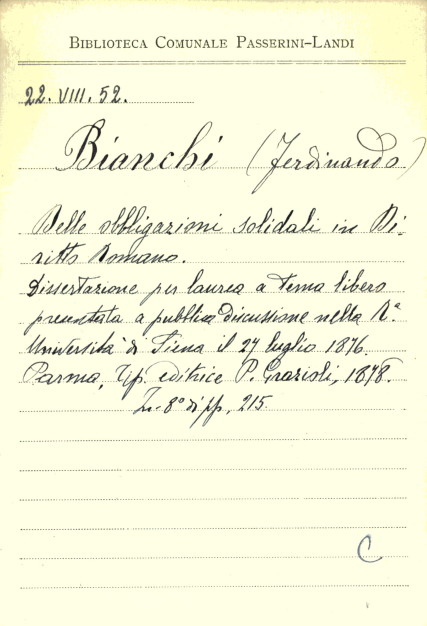 BIBLIOTECA COMUNALE PASSERINI-LANDI
22. VIII. 52.
Bianchi (Ferdinando)
Delle obbligazioni solidali in Di-
ritto Romano.
Dissertazione per laurea a tema libero
presentata a pubblica discussione nella R.ª
Università di Siena il 27 luglio 1876.
Parma, Tip. editrice P. Grazioli, 1878.
In-8° di pp. 215.
C